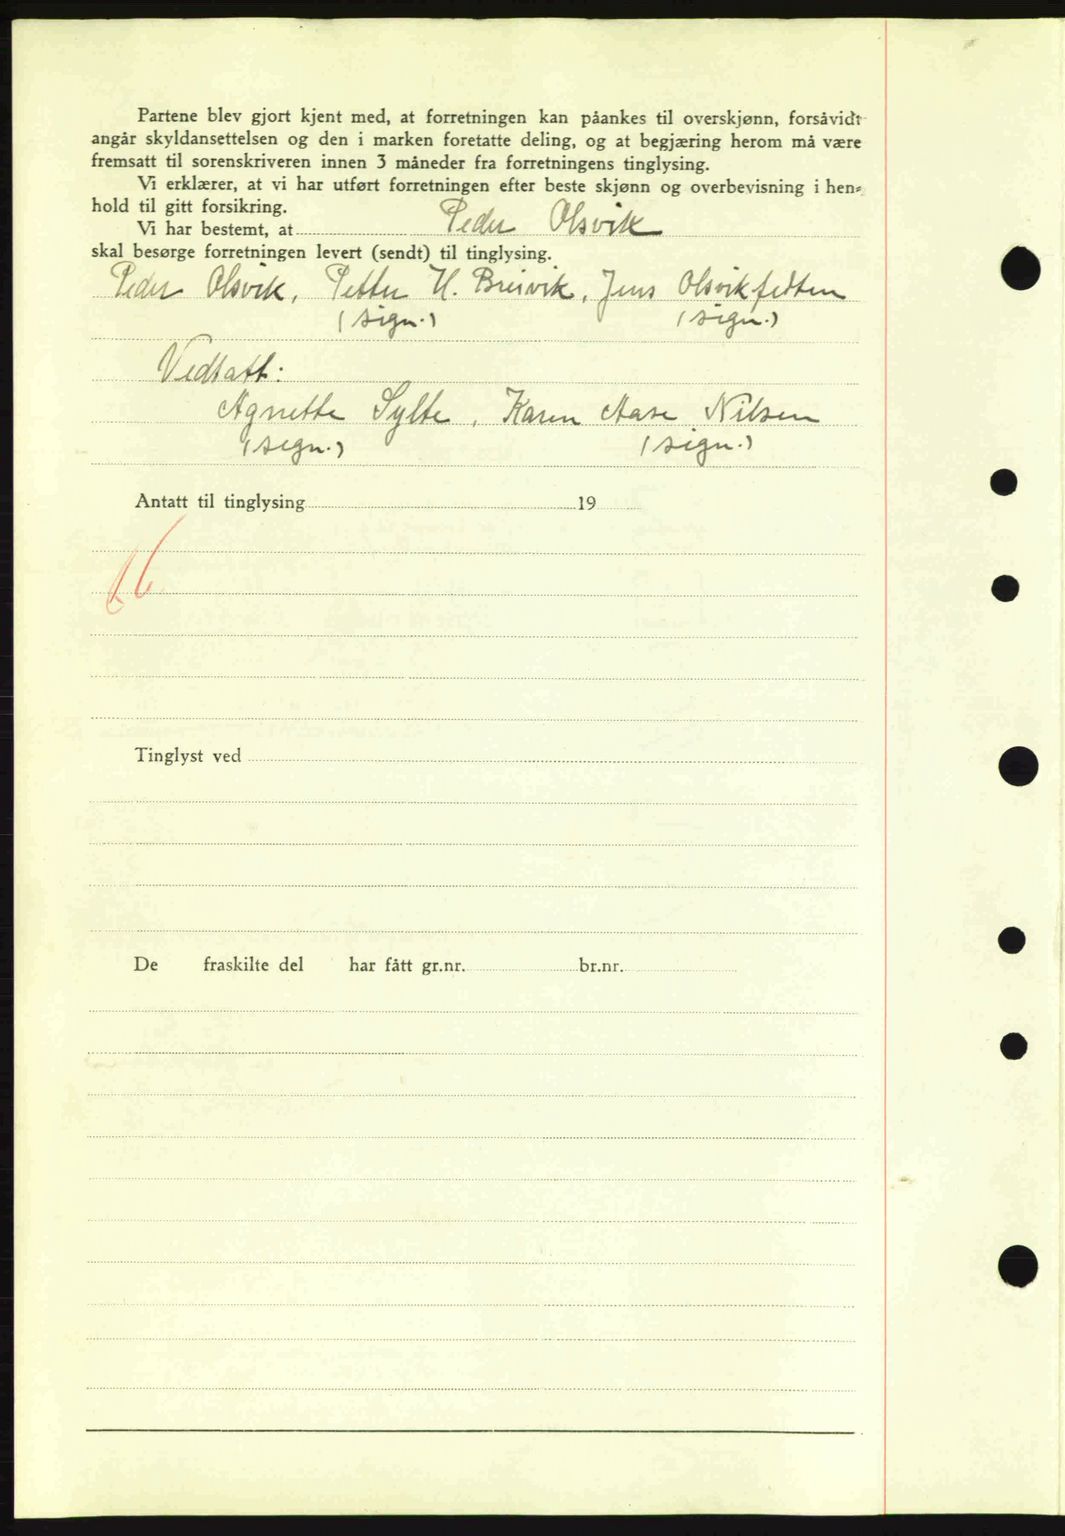 Partene blev gjort kjent med, at forretningen kan påankes til overskjønn, forsåvidt
angår skyldansettelsen og den i marken foretatte deling, og at begjæring herom må være
fremsatt til sorenskriveren innen 3 måneder fra forretningens tinglysing.
Vi erklærer, at vi har utført forretningen efter beste skjønn og overbevisning i hen-
hold til gitt forsikring.
Vi har bestemt, at Peder Olsvik
skal besørge forretningen levert (sendt) til tinglysing.
Peder Olsvik, Petter H. Breivik, Jens Olsvikfedten
(sign.) (sign.)
Vedtatt:
Agnette Sylte, Karen Aase Nilsen
(sign.) (sign.)
Antatt til tinglysing 19
Tinglyst ved
De fraskilte del har fått gr.nr. br.nr.